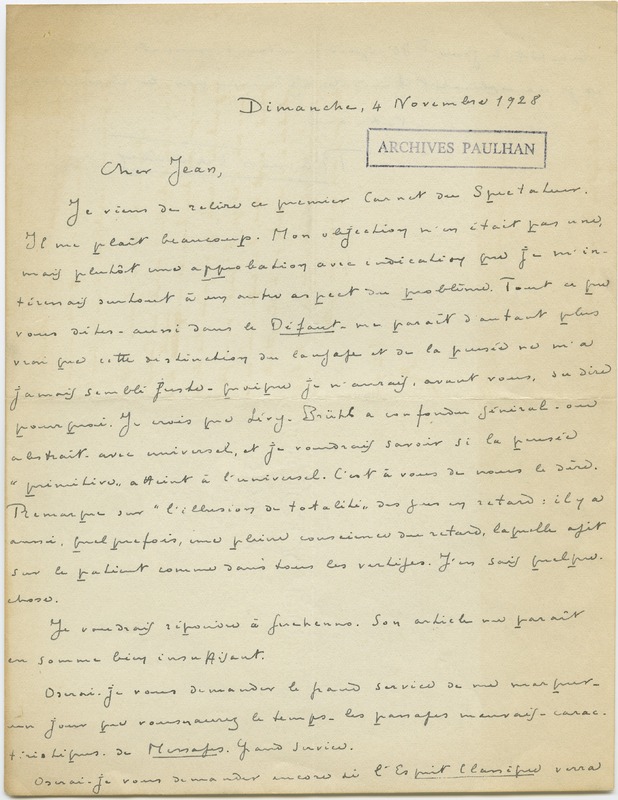 Dimanche, 4 Novembre 1928
ARCHIVES PAULHAN
Cher Jean,
Je viens de relire ce premier Carnet du Spectateur.
Il me plaît beaucoup. Mon objection n'en était pas une,
mais plutôt une approbation avec indication que je m'in-
téressais surtout à un autre aspect du problème. Tout ce que
vous dites - aussi dans le Défaut - me paraît d'autant plus
vrai que cette distinction du langage et de la pensée ne m'a
jamais semblé juste - quoique je n'aurais, avant vous, su dire
pourquoi. Je crois que Lévy-Brühl a confondu général - ou
abstrait - avec universel, et je voudrais savoir si la pensée
"primitive" atteint à l'universel. C'est à vous de nous le dire.
Remarque sur "l'illusion de totalité" des gens en retard : il y a
aussi, quelquefois, une pleine conscience du retard, laquelle agit
sur le patient comme dans tous les vertiges. J'en sais quelque
chose.
Je voudrais répondre à Guehenno. Son article me paraît
en somme bien insuffisant.
Oserai-je vous demander le grand service de me marquer -
un jour que vous aurez le temps - les passages mauvais - carac-
téristiques - de Messages. Grand service.
Oserai-je vous demander encore si l'Esprit Classique verra